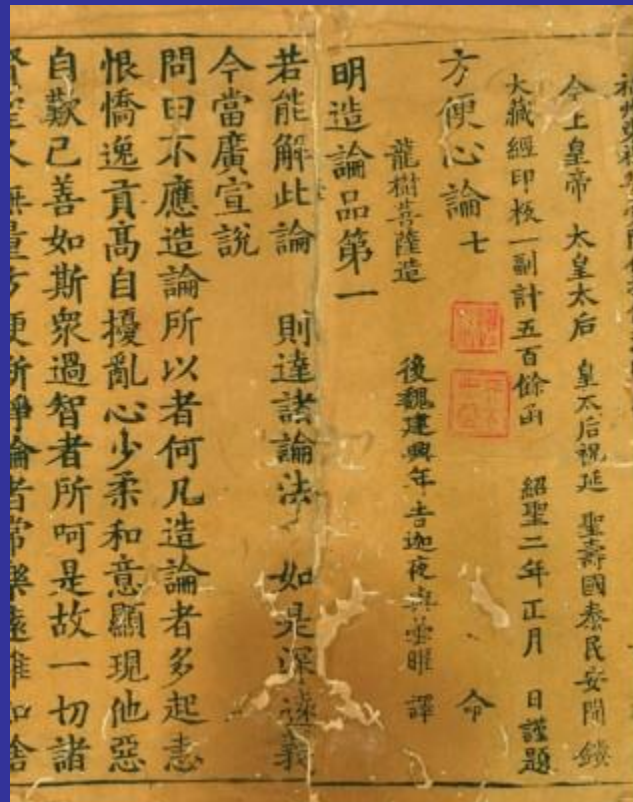 今上皇帝 太皇太后 皇太后祝延 聖壽國泰民安開鏤
大藏經印板一副計五百餘函 紹聖二年正月 日謹題
方便心論 七 命
龍樹菩薩造
後魏建興年吉迦夜與曇曜 譯
明造論品第一
若能解此論 則達諸論法 如是深遠義
今當廣宣說
問曰不應造論所以者何凡造論者多起恚
恨憍逸貢高自擾亂心少柔和意顯現他惡
自歎己善如斯衆過智者所呵是故一切諸
無量方便斷諍論者常樂遠離如捨